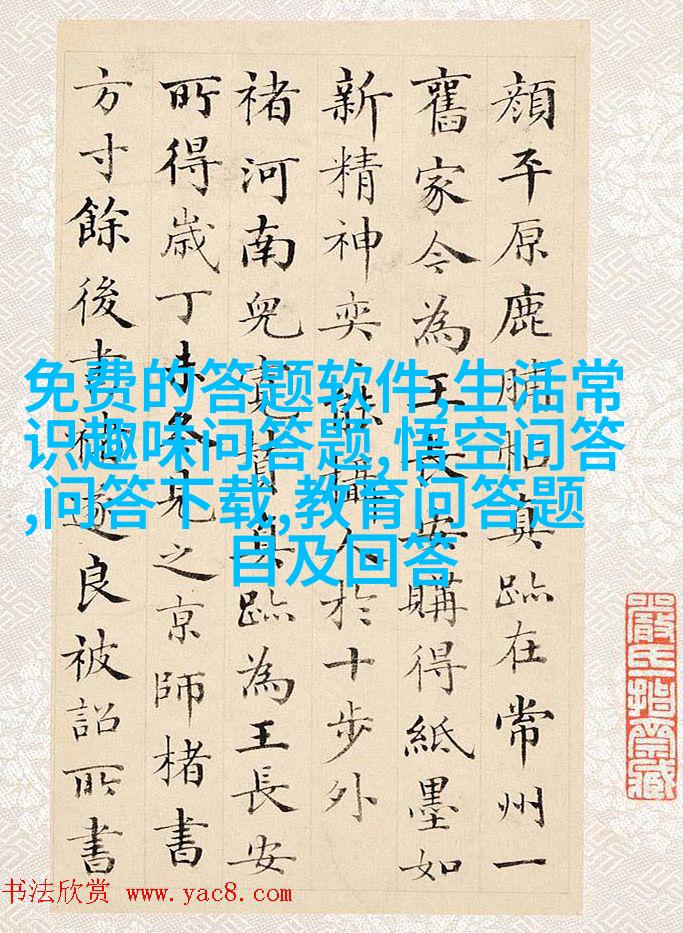 顔平原鹿脯帖真跡在常州一
舊家今為王長安購得紙墨如
新精神奕攝人於十步外
褚河南兒寬贊真跡為王長安
所得歲丁未余見之京師楮書
方寸餘後書褚遂良被詔所書
免费的答题软件,生活常
识趣味问答题,悟空问答
,问答下载,教育问答题
目及回答
书法欣赏 www.yac8.com